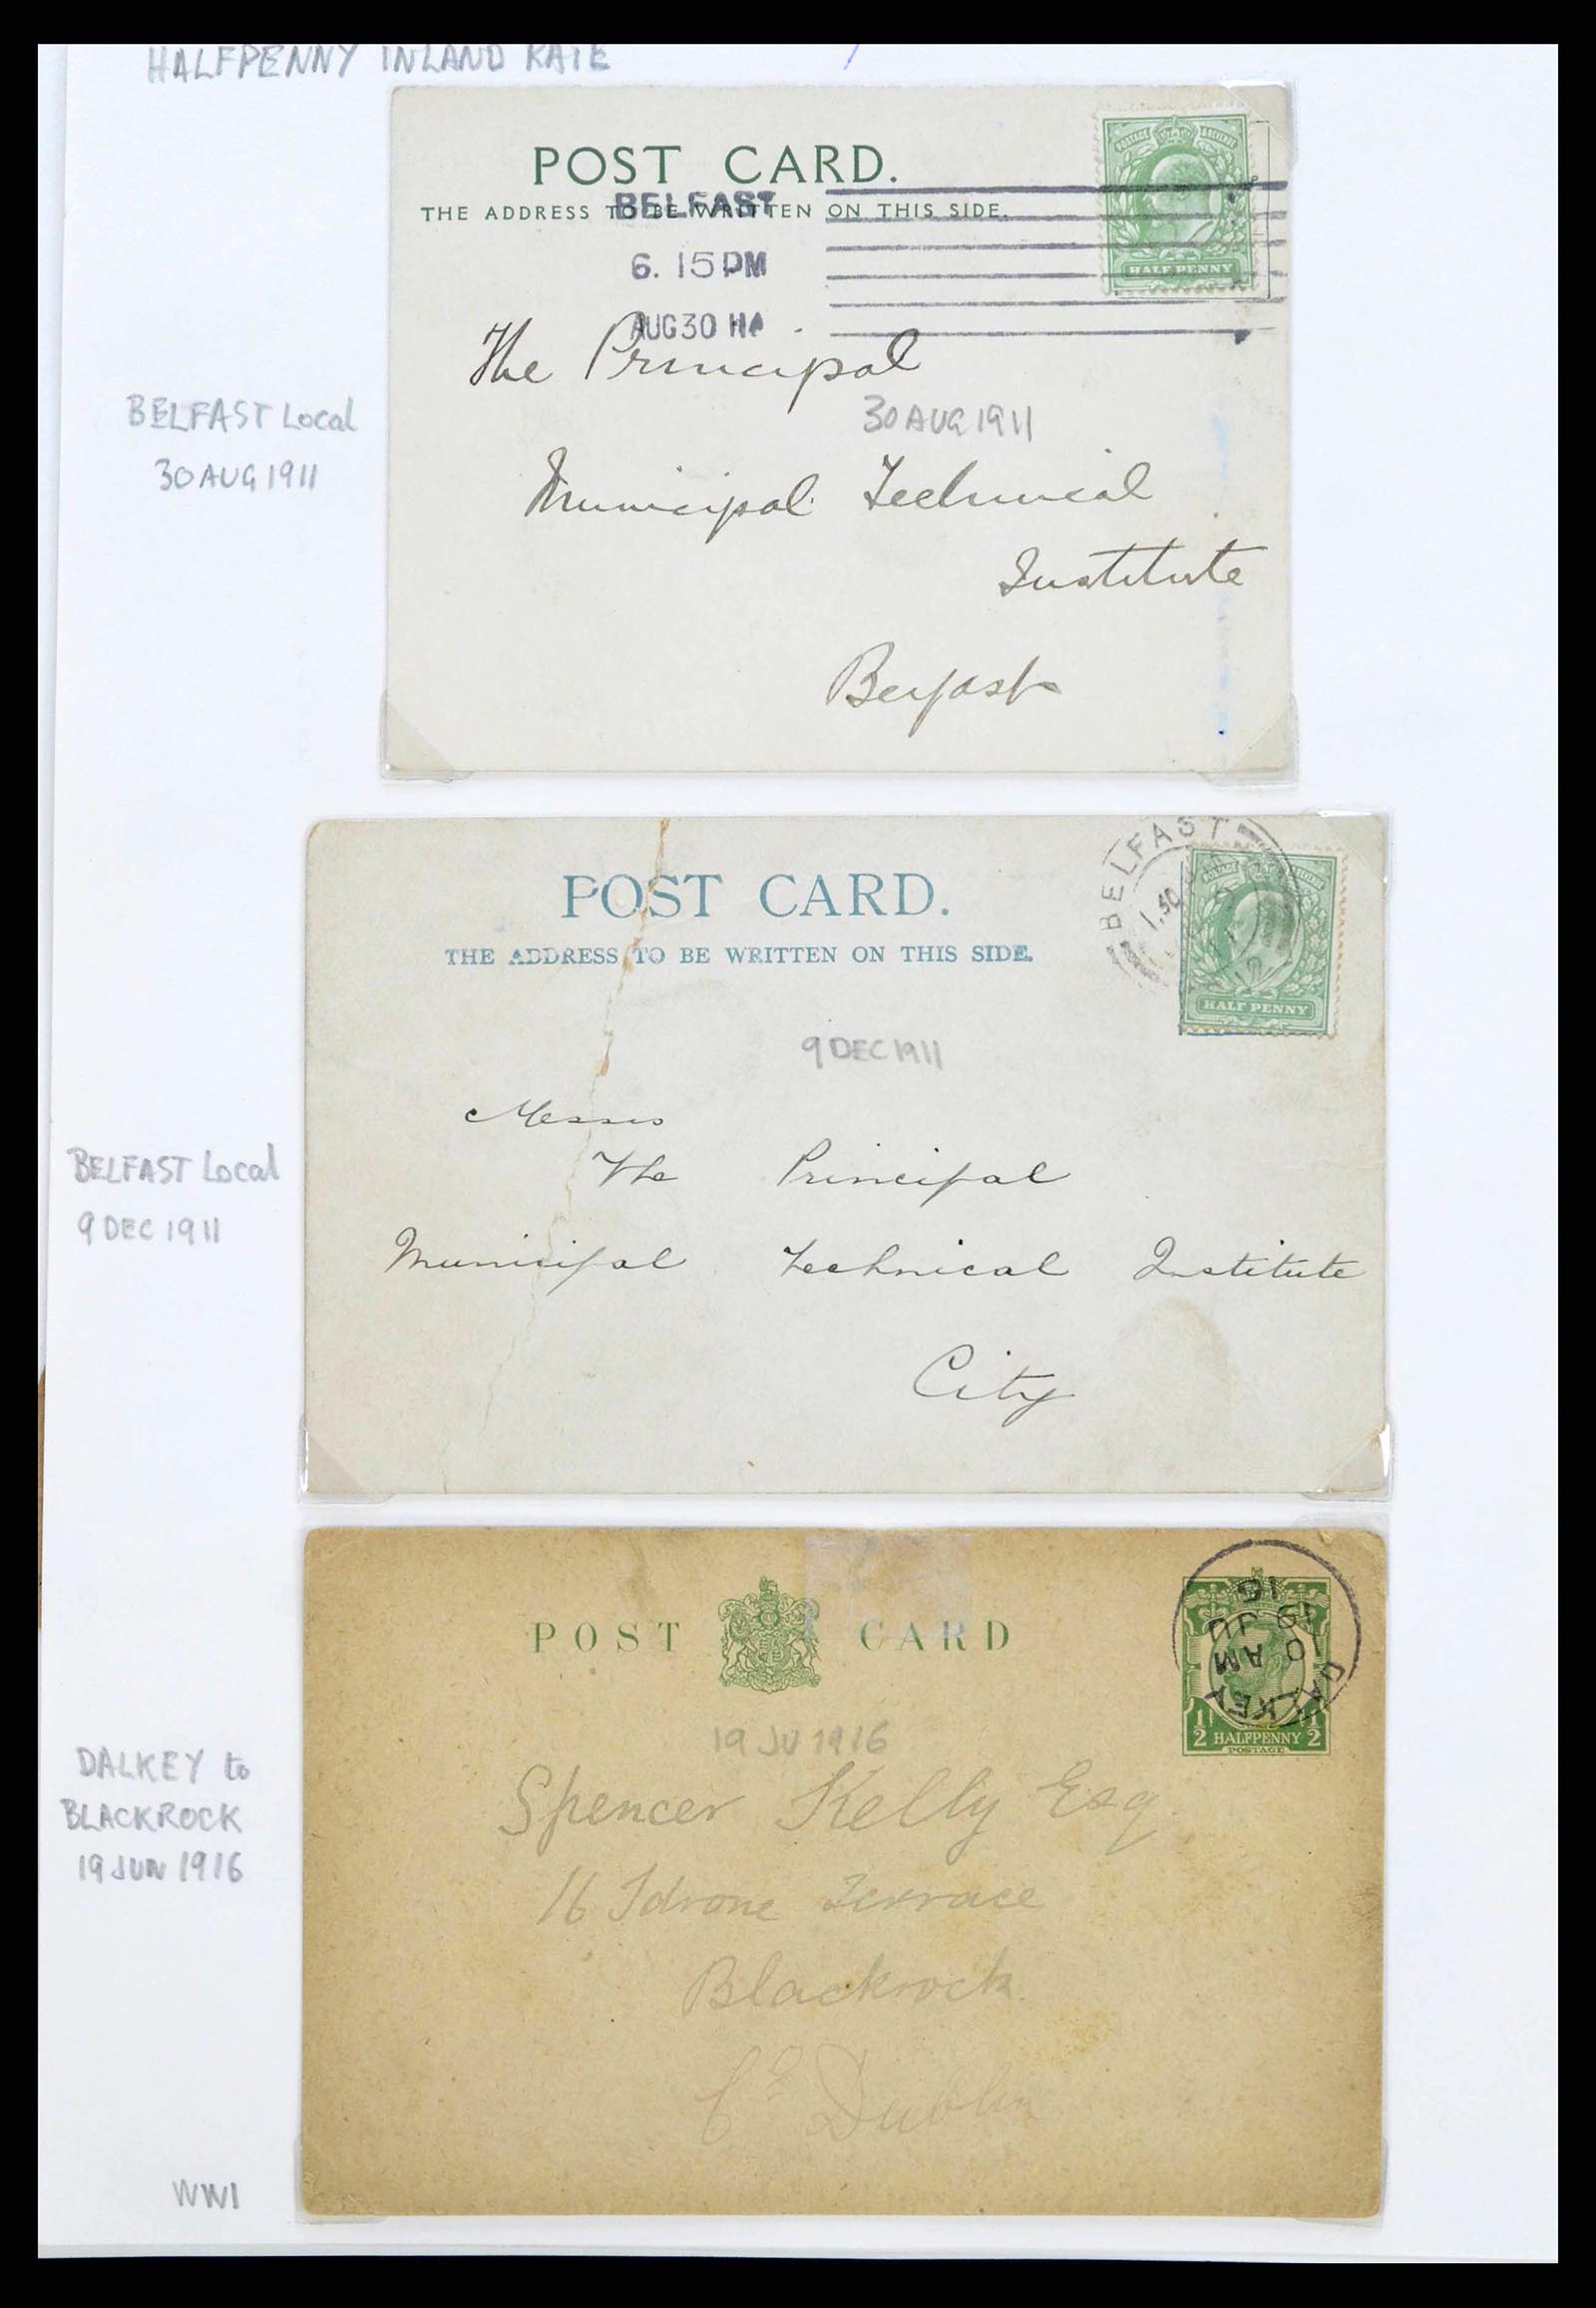 HALFPENNY INLAND RATE
POST CARD.
THE ADDRESS TO BE WRITTEN ON THIS SIDE.
BELFAST
6. 15 PM
AUG 30
POSTAGE & REVENUE
HALF PENNY
The Principal
30 AUG 1911
Municipal Technical
Institute
Belfast
BELFAST Local
30 AUG 1911
POST CARD.
THE ADDRESS TO BE WRITTEN ON THIS SIDE.
BELFAST
1.30
HALF PENNY
9 DEC 1911
Messrs
The Principal
Municipal Technical Institute
City
BELFAST Local
9 DEC 1911
POST CARD
DALKEY
10 AM
19 JU
16
1/2 HALFPENNY 1/2
POSTAGE
19 JU 1916
Spencer Kelly Esq.
16 Idrone Terrace
Blackrock.
Co Dublin
DALKEY to
BLACKROCK
19 JUN 1916
WW1